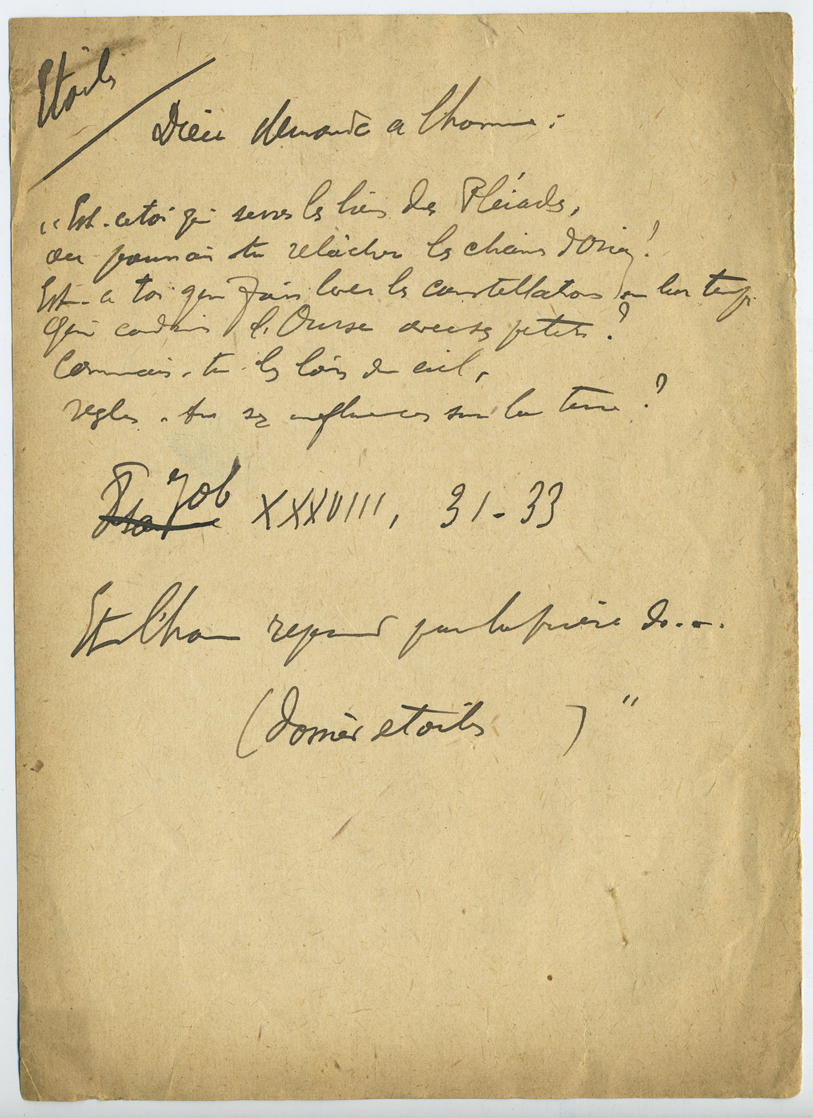 Etoiles
Dieu demande a l'homme :
"Est-ce toi qui serres les liens des Pléiades,
ou pourrais tu relâcher les chaines d'Orion!
Est-ce toi qui fais lever les constellations en leur temps
qui conduis l'Ourse avec ses petits ?
Connais-tu les lois du ciel,
règles-tu ses influences sur la terre ?
Job XXXVIII, 31-33
Et l'homme repond par la prière de...
(dossier etoiles ) "